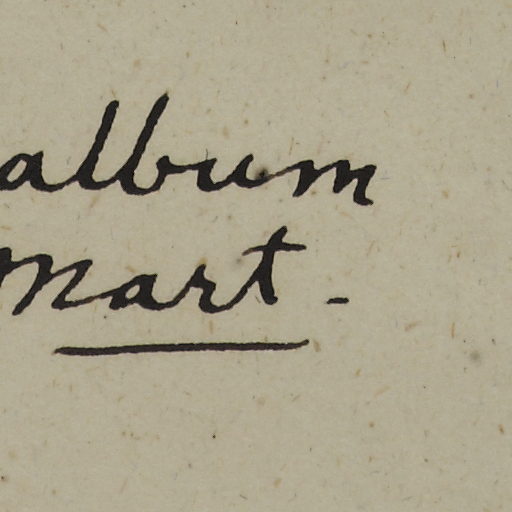 album
Mart -